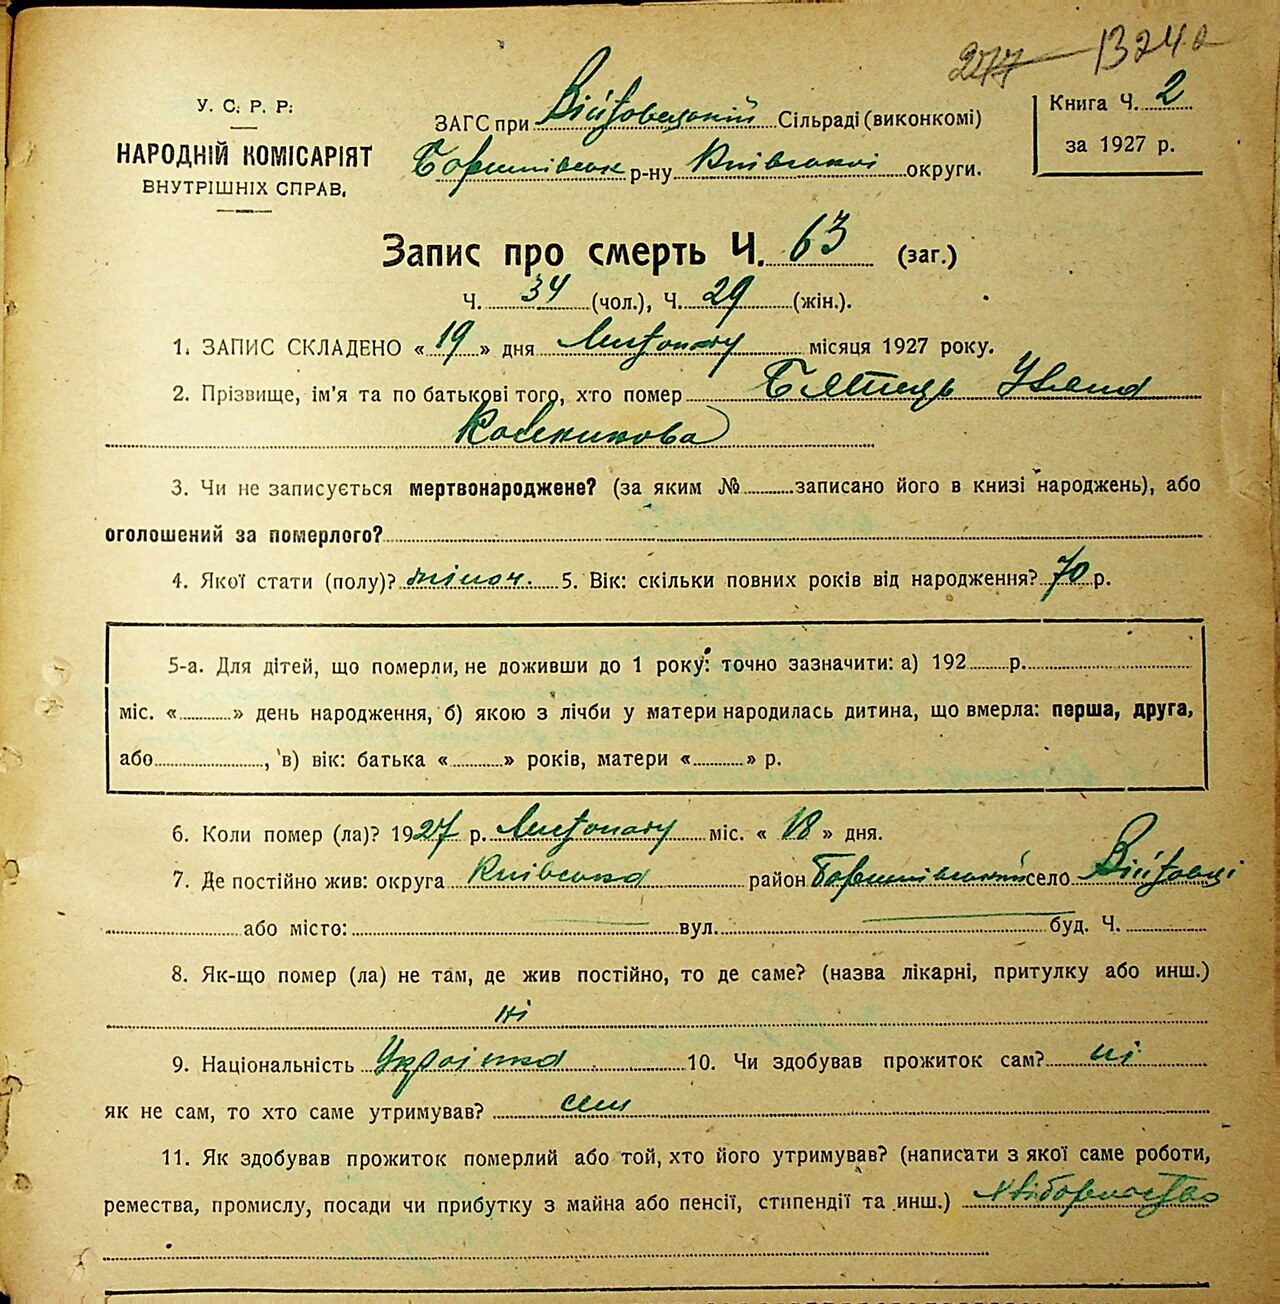 277 1324
У. С. Р. Р.
НАРОДНІЙ КОМІСАРІЯТ
ВНУТРІШНІХ СПРАВ.
ЗАГС при Війтовецькій Сільраді (виконкомі)
Боришпівськ р-ну Київської округи.
Книга Ч. 2
за 1927 р.
Запис про смерть Ч. 63 (заг.)
Ч. 34 (чол.), Ч. 29 (жін.).
1. ЗАПИС СКЛАДЕНО « 19 » дня Листопаду місяця 1927 року.
2. Прізвище, ім'я та по батькові того, хто помер Уляна
3. Чи не записується мертвонароджене? (за яким № записано його в книзі народжень), або
оголошений за померлого?
4. Якої стати (полу)? жіноч. 5. Вік: скільки повних років від народження? 70 р.
5-а. Для дітей, що померли, не доживши до 1 року: точно зазначити: а) 192 р.
міс. « » день народження, б) якою з лічби у матери народилась дитина, що вмерла: перша, друга,
або , в) вік: батька « » років, матери « » р.
6. Коли помер (ла)? 1927 р. Листопаду міс. « 18 » дня.
7. Де постійно жив: округа Київська район Боришпівський село Війтовці
або місто: вул. буд. Ч.
8. Як-що помер (ла) не там, де жив постійно, то де саме? (назва лікарні, притулку або инш.)
ні
9. Національність Українка 10. Чи здобував прожиток сам? ні
як не сам, то хто саме утримував? син
11. Як здобував прожиток померлий або той, хто його утримував? (написати з якої саме роботи,
ремества, промислу, посади чи прибутку з майна або пенсії, стипендії та инш.) хліборобство